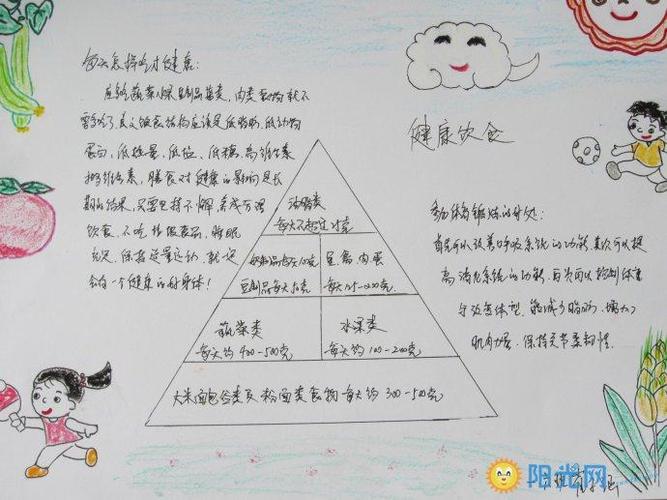 每天怎样吃才健康:
应多吃蔬菜水果豆制品菌类,肉类食物就不
需多吃了,总之饮食结构应该是低脂肪,低动物
蛋白,低热量、低盐、低糖、高维生素
持续不懈,养成有规
饮食,不吃垃圾食品,睡眠
充足,保持适量运动,就一定
会有一个健康的好身体!
健康饮食
油脂类
每天不超过25克
奶制品每天100克
豆制品每天50克
鱼、禽、肉、蛋
每天125-200克
蔬菜类
每天约400-500克
水果类
每天约100-200克
大米面包谷类及粉面类食物每天约300-500克
参加体育锻炼的好处:
首先可以改善呼吸系统的功能,其次可以提
高消化系统的功能,再次可以控制体重
与改善体型,能减少脂肪,增加
肌肉力量,保持关节柔韧性.
阳光网